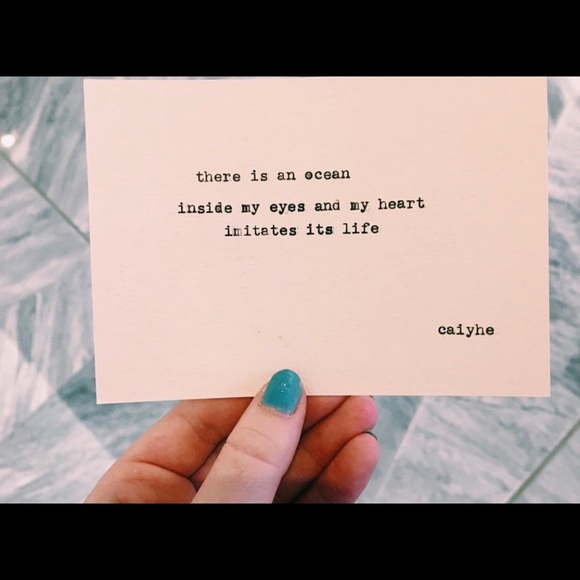 there is an ocean
inside my eyes and my heart
imitates its life
caiyhe